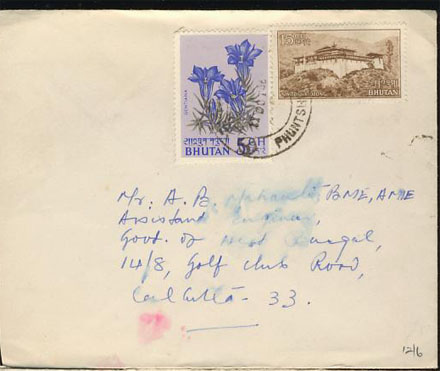 GENTIANA
BHUTAN 5 CH
BHUTAN
PHUNTSH
Mr. A. B. BME, AMIE
Assistant Engineer,
Govt. of West Bengal,
14/8, Golf Club Road,
Calcutta - 33.
12/6